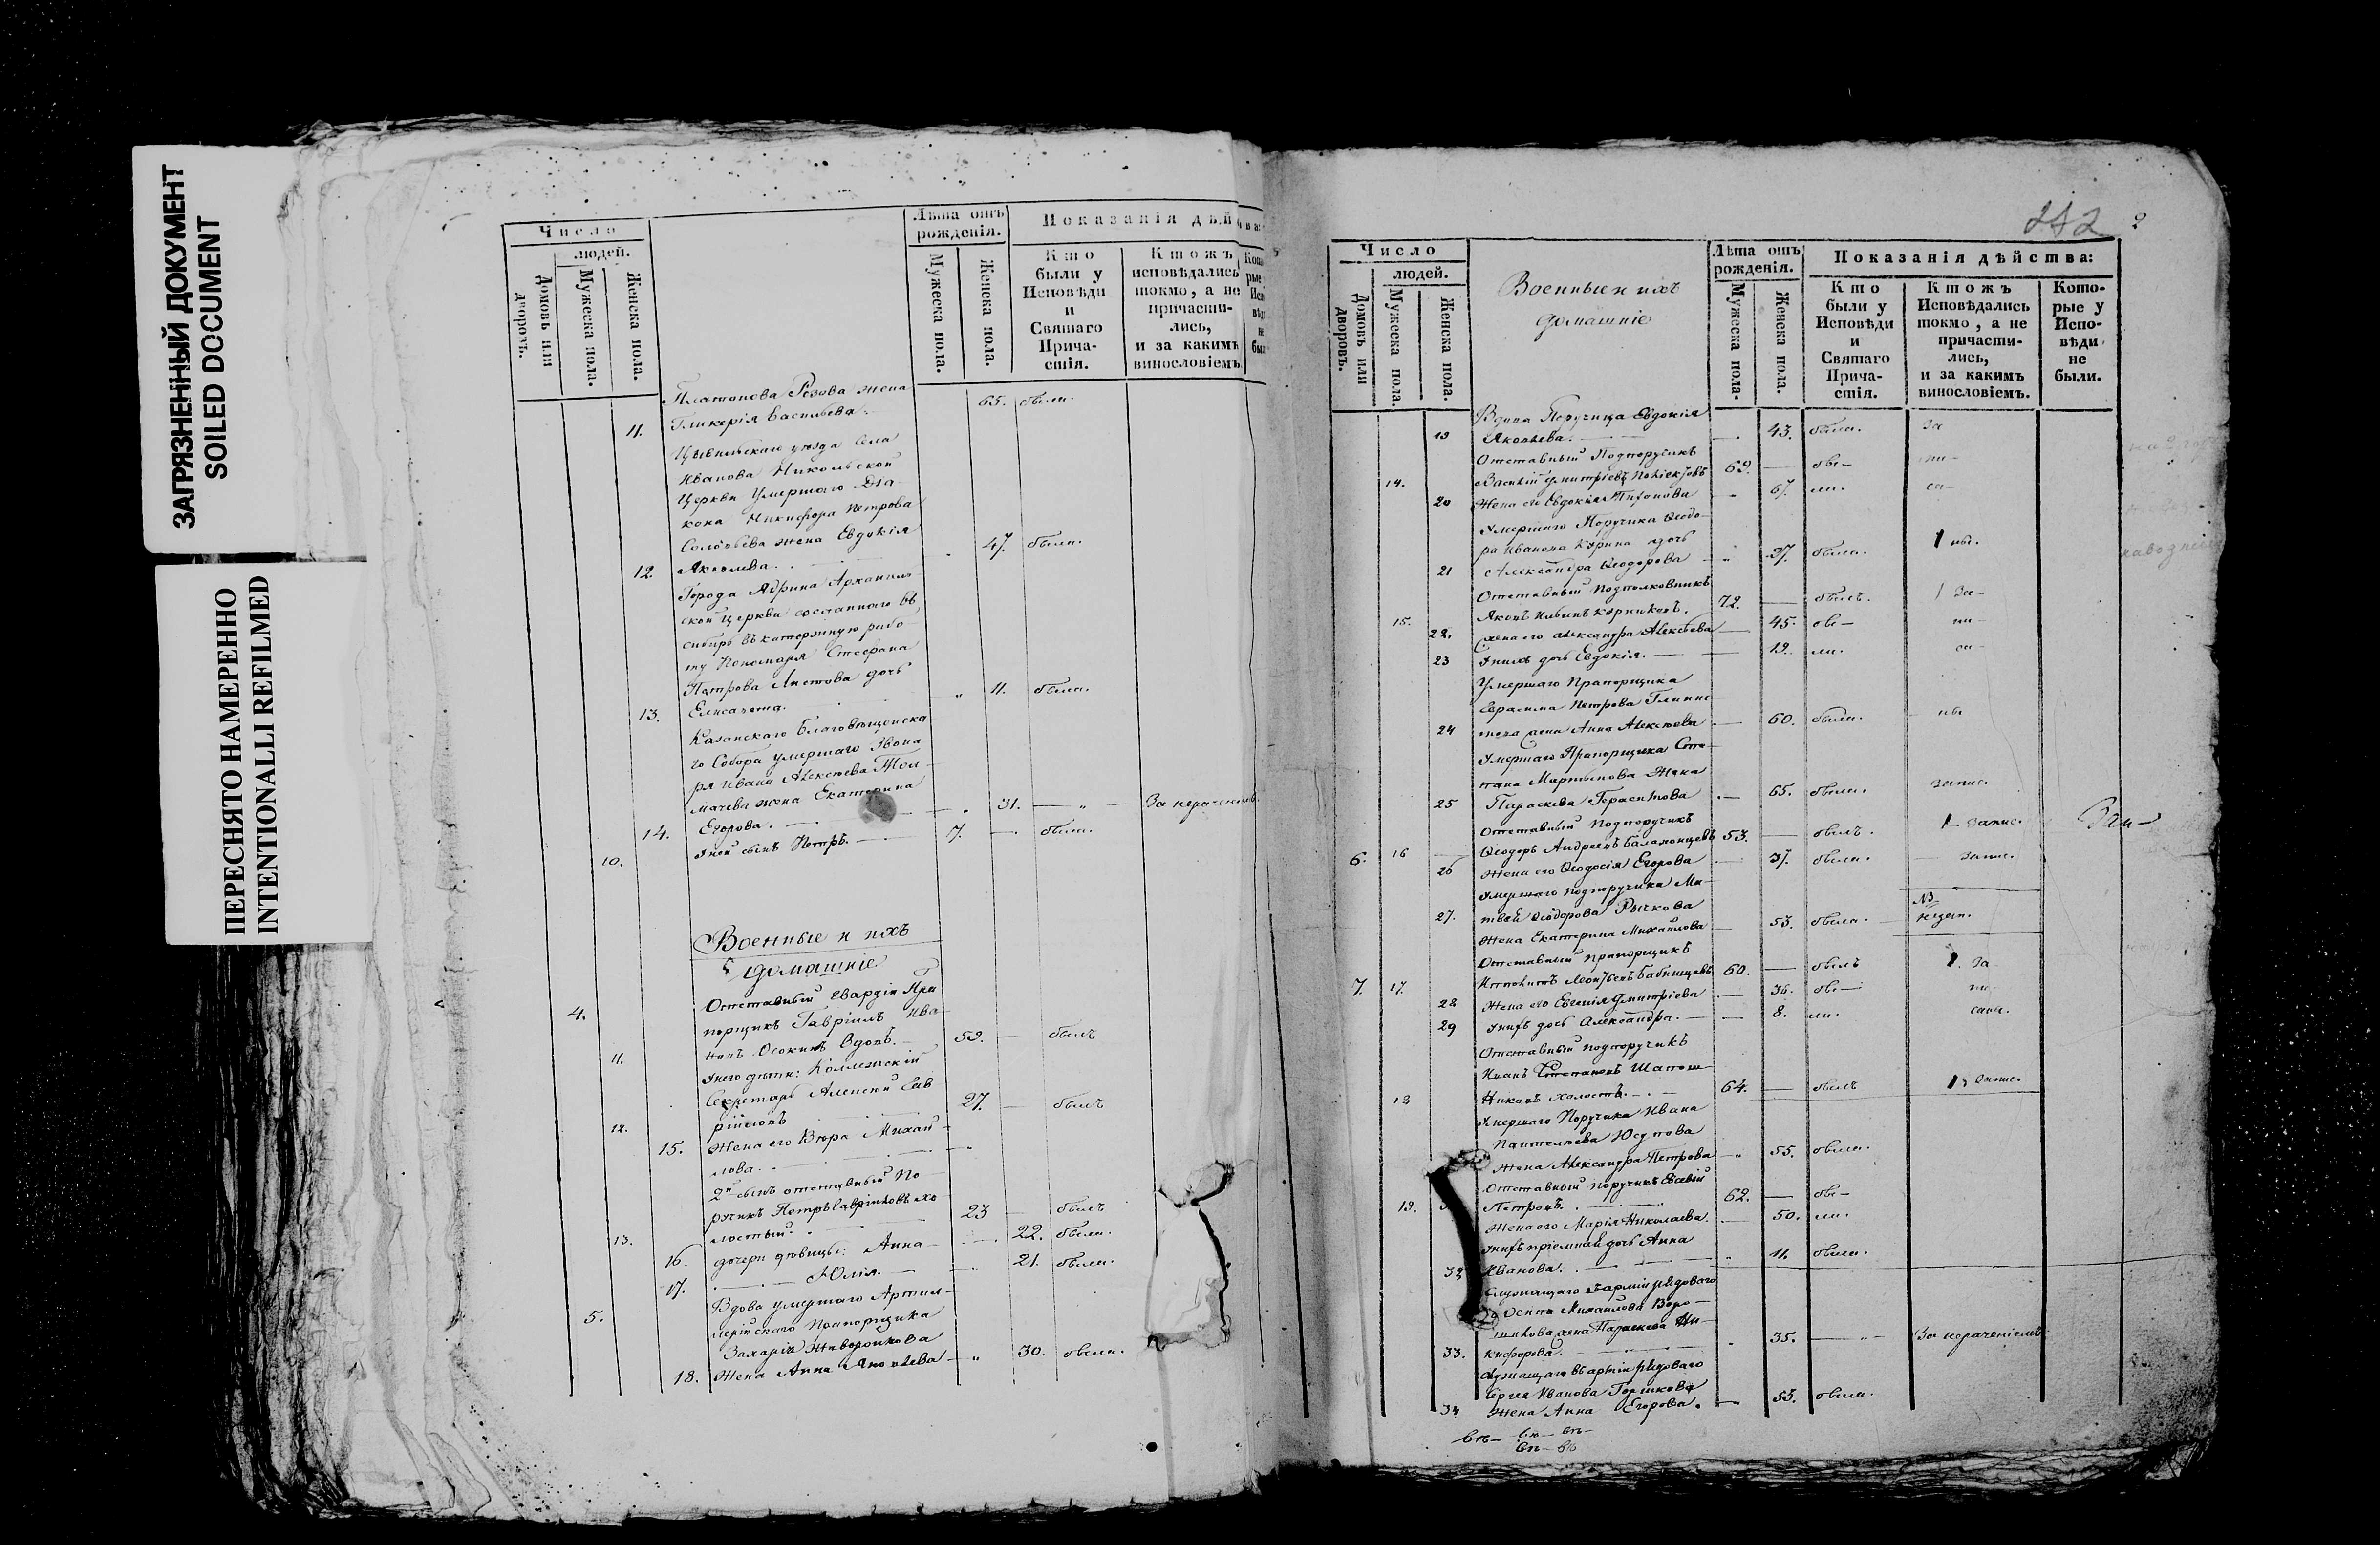 ЗАГРЯЗНЕННЫЙ ДОКУМЕНТ
SOILED DOCUMENT
ПЕРЕСНЯТО НАМЕРЕННО
INTENTIONALLI REFILMED
Число
людей.
Домовъ или дворовъ.
Мужеска пола.
Женска пола.
Лѣта отъ рожденія.
Мужеска пола.
Женска пола.
Показанія дѣй
Кто были у Исповѣди и Святаго Прича-стія.
Ктожъ исповѣдались токмо, а не причасти-лись, и за какимъ винословіемъ.
Платонова Резова жена
11. Гликерія Васильева. 65. были.
Цывильскаго уѣзда Села
Иванова Никольской
Церкви Умершаго Діа-
кона Никифора Петрова
Соловьева жена Евдокія
12. Яковлева. 47. были.
Города Ядрина Архангель
ской Церкви сосланнаго въ
сибирь въ каторжную рабо-
ту Пономаря Стефана
Петрова Листова дочь
13. Елисавета. 11. были.
Казанскаго Благовѣщенска
го Собора умершаго Звона
ря Ивана Алексѣева Тол-
мачева жена Екатерина
14. Егорова. 31. За нераченіемъ
10. У ней сынъ Петръ. 7. были.
Военные и ихъ
домашніе
4. Отставный Гвардіи Пра
порщикъ Гавріилъ Ива-
11. новъ Осокинъ вдовъ. 59. былъ
У него дѣти: Коллежскій
Секретарь Алексѣй Гав
12.ріиловъ 27. былъ
15. Жена его Вѣра Михай
лова.
2й сынъ отставный По
ручикъ Петръ Гавріиловъ хо
13. лостый. 23 былъ
16. дочери дѣвицы: Анна 22. были.
17. Юлія. 21. были.
5. Вдова умершаго Артил-
лерійскаго Прапорщика
Захарія Жаворонкова
18. Жена Анна Яковлева 30. были.
242
2
Число
людей.
Домовъ или дворовъ.
Мужеска пола.
Женска пола.
Военные и ихъ
домашніе
Лѣта отъ рожденія.
Мужеска пола.
Женска пола.
Показанія дѣйства:
Кто были у Исповѣди и Святаго Прича-стія.
Ктожъ Исповѣдались токмо, а не причасти-лись, и за какимъ винословіемъ.
Кото-рые у Испо-вѣди не были.
Вдова Поручица Евдокія
19 Яковлева. 43. были. За
Отставный Подпоручикъ
14. Василій Дмитріевъ 69. бы-
20 Жена его Евдокія 67. ли.
Умершаго Поручика Ѳеодо-
ра Иванова Корина дочь
21 Александра Ѳеодорова 27. были.
Отставный Подполковникъ
15. Яковъ 72. былъ. За-
22. Жена его Александра Алексѣева 45. бы- пи-
23 У нихъ дочь Евдокія. 19. ли. са-
Умершаго Прапорщика
Герасима Петрова Глинис-
24 Жена Анна Алексѣева 60. были. ны
Умершаго Прапорщика Сте-
пана Мартынова Жена
25 Параскева Герасимова 65. были. запис.
Отставный Подпоручикъ
6. 16 Ѳеодоръ Андреевъ 53. былъ. запис. Зап-
26 Жена его Ѳеодосія Егорова 37. были. запис.
Умершаго подпоручика Ма-
27. твѣя Ѳеодорова Рычкова
Жена Екатерина Михайлова 53. были. NB
Отставный прапорщикъ
7. 17. 60. былъ За
28 Жена его Евгенія Дмитріева 36. бы- пи-
29 У нихъ дочь Александра. 8. ли. саны.
Отставный подпоручикъ
Иванъ Степановъ Шапош-
18 никовъ холостъ. 64. былъ запис.
Умершаго Поручика Ивана
Пантелѣева Юсупова
Жена Александра Петрова 55. были.
Отставный поручикъ
19. Петровъ. 62. бы-
Жена его Марія Николаева. 50. ли.
У нихъ пріемная дочь Анна
32 Иванова. 11. были.
Служащаго въ арміи рядоваго
Осипа Михайлова Воро-
жена Параскева Ни-
33. кифорова. 35. За нераченіемъ
Служащаго въ арміи рядоваго
Сергея Иванова Горшкова
34 Жена Анна Егорова. 53. были.